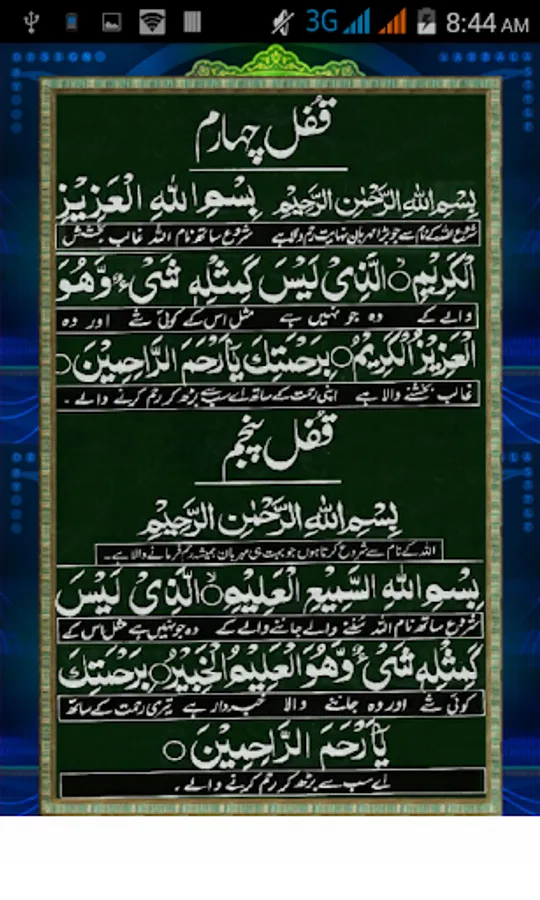 3G 8:44 AM
قفل چہارم
بِسْمِ اللهِ الرَّحْمٰنِ الرَّحِيْمِ بِسْمِ اللهِ الْعَزِيْزِ
شروع اللہ کے نام سے جو بڑا مہربان نہایت رحم والا ہے شروع ساتھ نام اللہ غالب بخشش
الْكَرِيْمِ○ الَّذِىْ لَيْسَ كَمِثْلِهٖ شَىْءٌ وَّهُوَ
والے کے وہ جو نہیں ہے مثل اس کے کوئی شے اور وہ
الْعَزِيْزُ الْكَرِيْمُ○ بِرَحْمَتِكَ يَآ اَرْحَمَ الرَّاحِمِيْنَ○
غالب بخشنے والا ہے اپنی رحمت کے ساتھ اے سب سے بڑھ کر رحم کرنے والے۔
قفل پنجم
بِسْمِ اللهِ الرَّحْمٰنِ الرَّحِيْمِ
اللہ کے نام سے شروع کرتا ہوں جو بہت ہی مہربان ہمیشہ رحم فرمانے والا ہے۔
بِسْمِ اللهِ السَّمِيْعِ الْعَلِيْمِ○ الَّذِىْ لَيْسَ
شروع ساتھ نام اللہ سننے والے جاننے والے کے وہ جو نہیں ہے مثل اس کے
كَمِثْلِهٖ شَىْءٌ وَّهُوَ الْعَلِيْمُ الْخَبِيْرُ○ بِرَحْمَتِكَ
کوئی شے اور وہ جاننے والا خبردار ہے تیری رحمت کے ساتھ
يَآ اَرْحَمَ الرَّاحِمِيْنَ○
اے سب سے بڑھ کر رحم کرنے والے۔